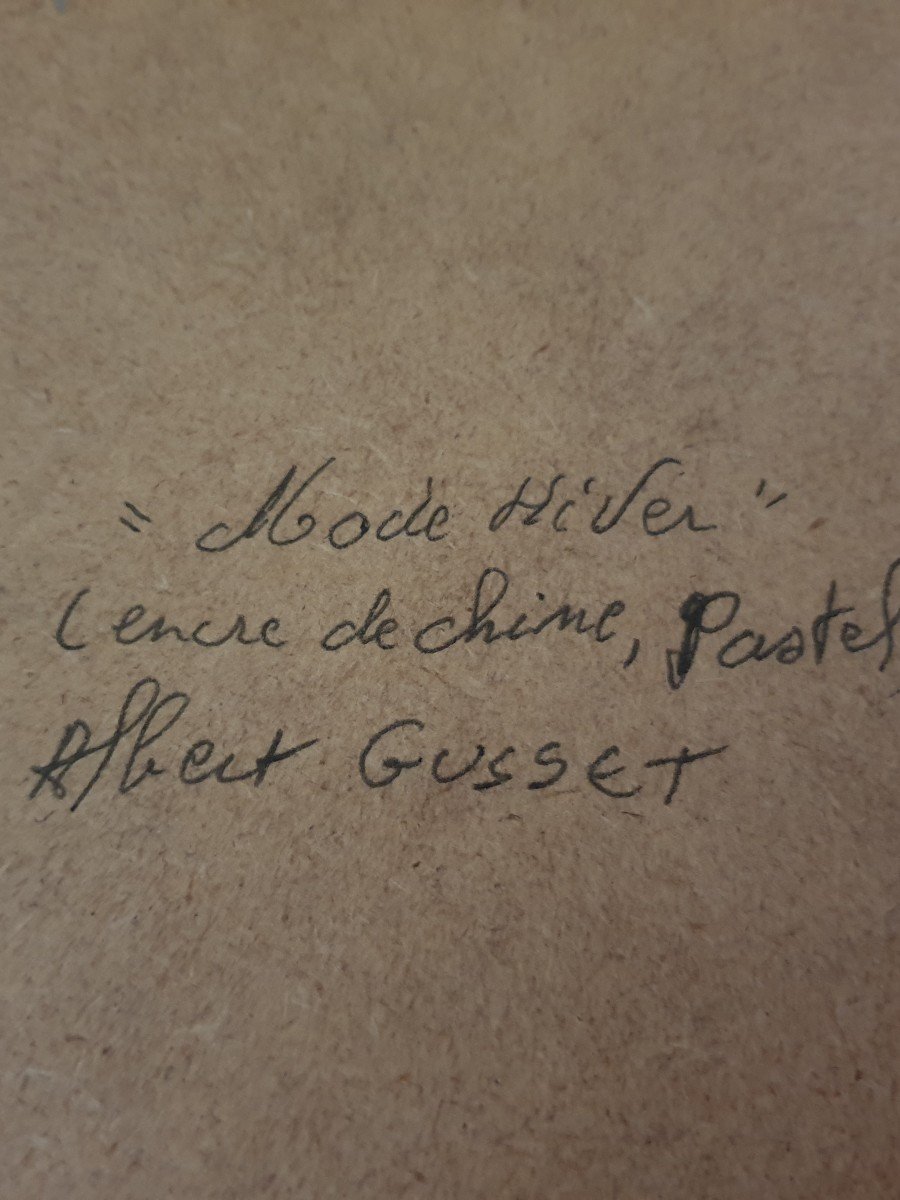 "Mode Hiver"
(encre de chine, Pastel
Albert GUSSET